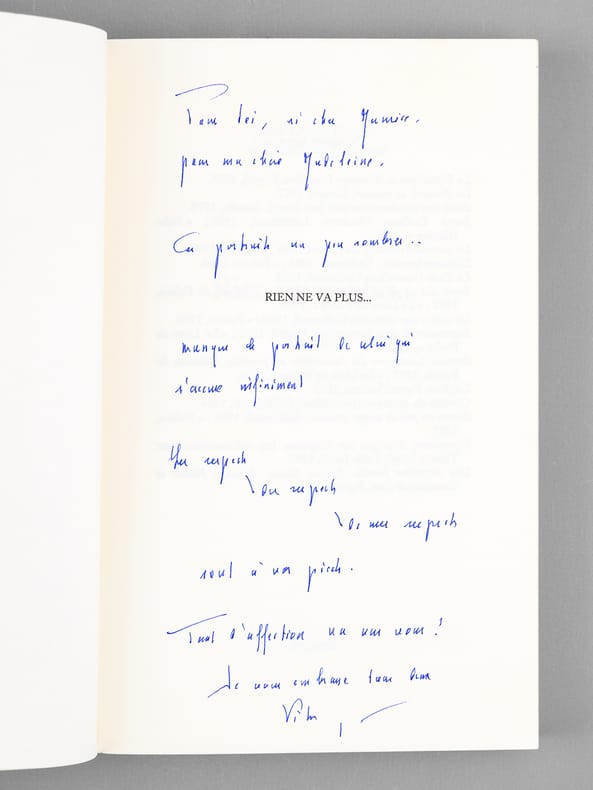 Pour toi, si cher Maurice.
pour ma chère Madeleine.
Ces portraits un peu sombres..
RIEN NE VA PLUS...
manque de portrait de celui qui
s'accuse infiniment
Les respects
des respects
de mes respects
sont à vos pieds.
Tant d'affection va vers vous !
Je vous embrasse tous deux